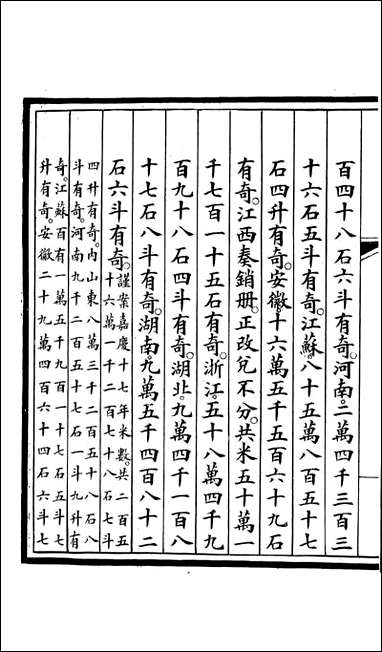 百四十八石六斗有奇。河南。二萬四千三百三
十六石五斗有奇。江蘇。八十五萬八百五十七
石四升有奇。安徽。十六萬五千五百六十九石
有奇。江西奏銷册。正改兌不分。共米五十萬一
千七百一十五石有奇。浙江。五十八萬四千九
百九十八石四斗有奇。湖北。九萬四千一百八
十七石八斗有奇。湖南。九萬五千四百八十二
石六斗有奇。謹案嘉慶十七年米數。共二百五
十六萬一千二百七十八石七斗
四升有奇。內山東八萬三千二百五十八石八
斗有奇。河南九千二百五十七石一斗九升有
奇。江蘇百有一萬五千九百一十七石五斗七
升有奇。安徽二十九萬四百六十四石六斗七